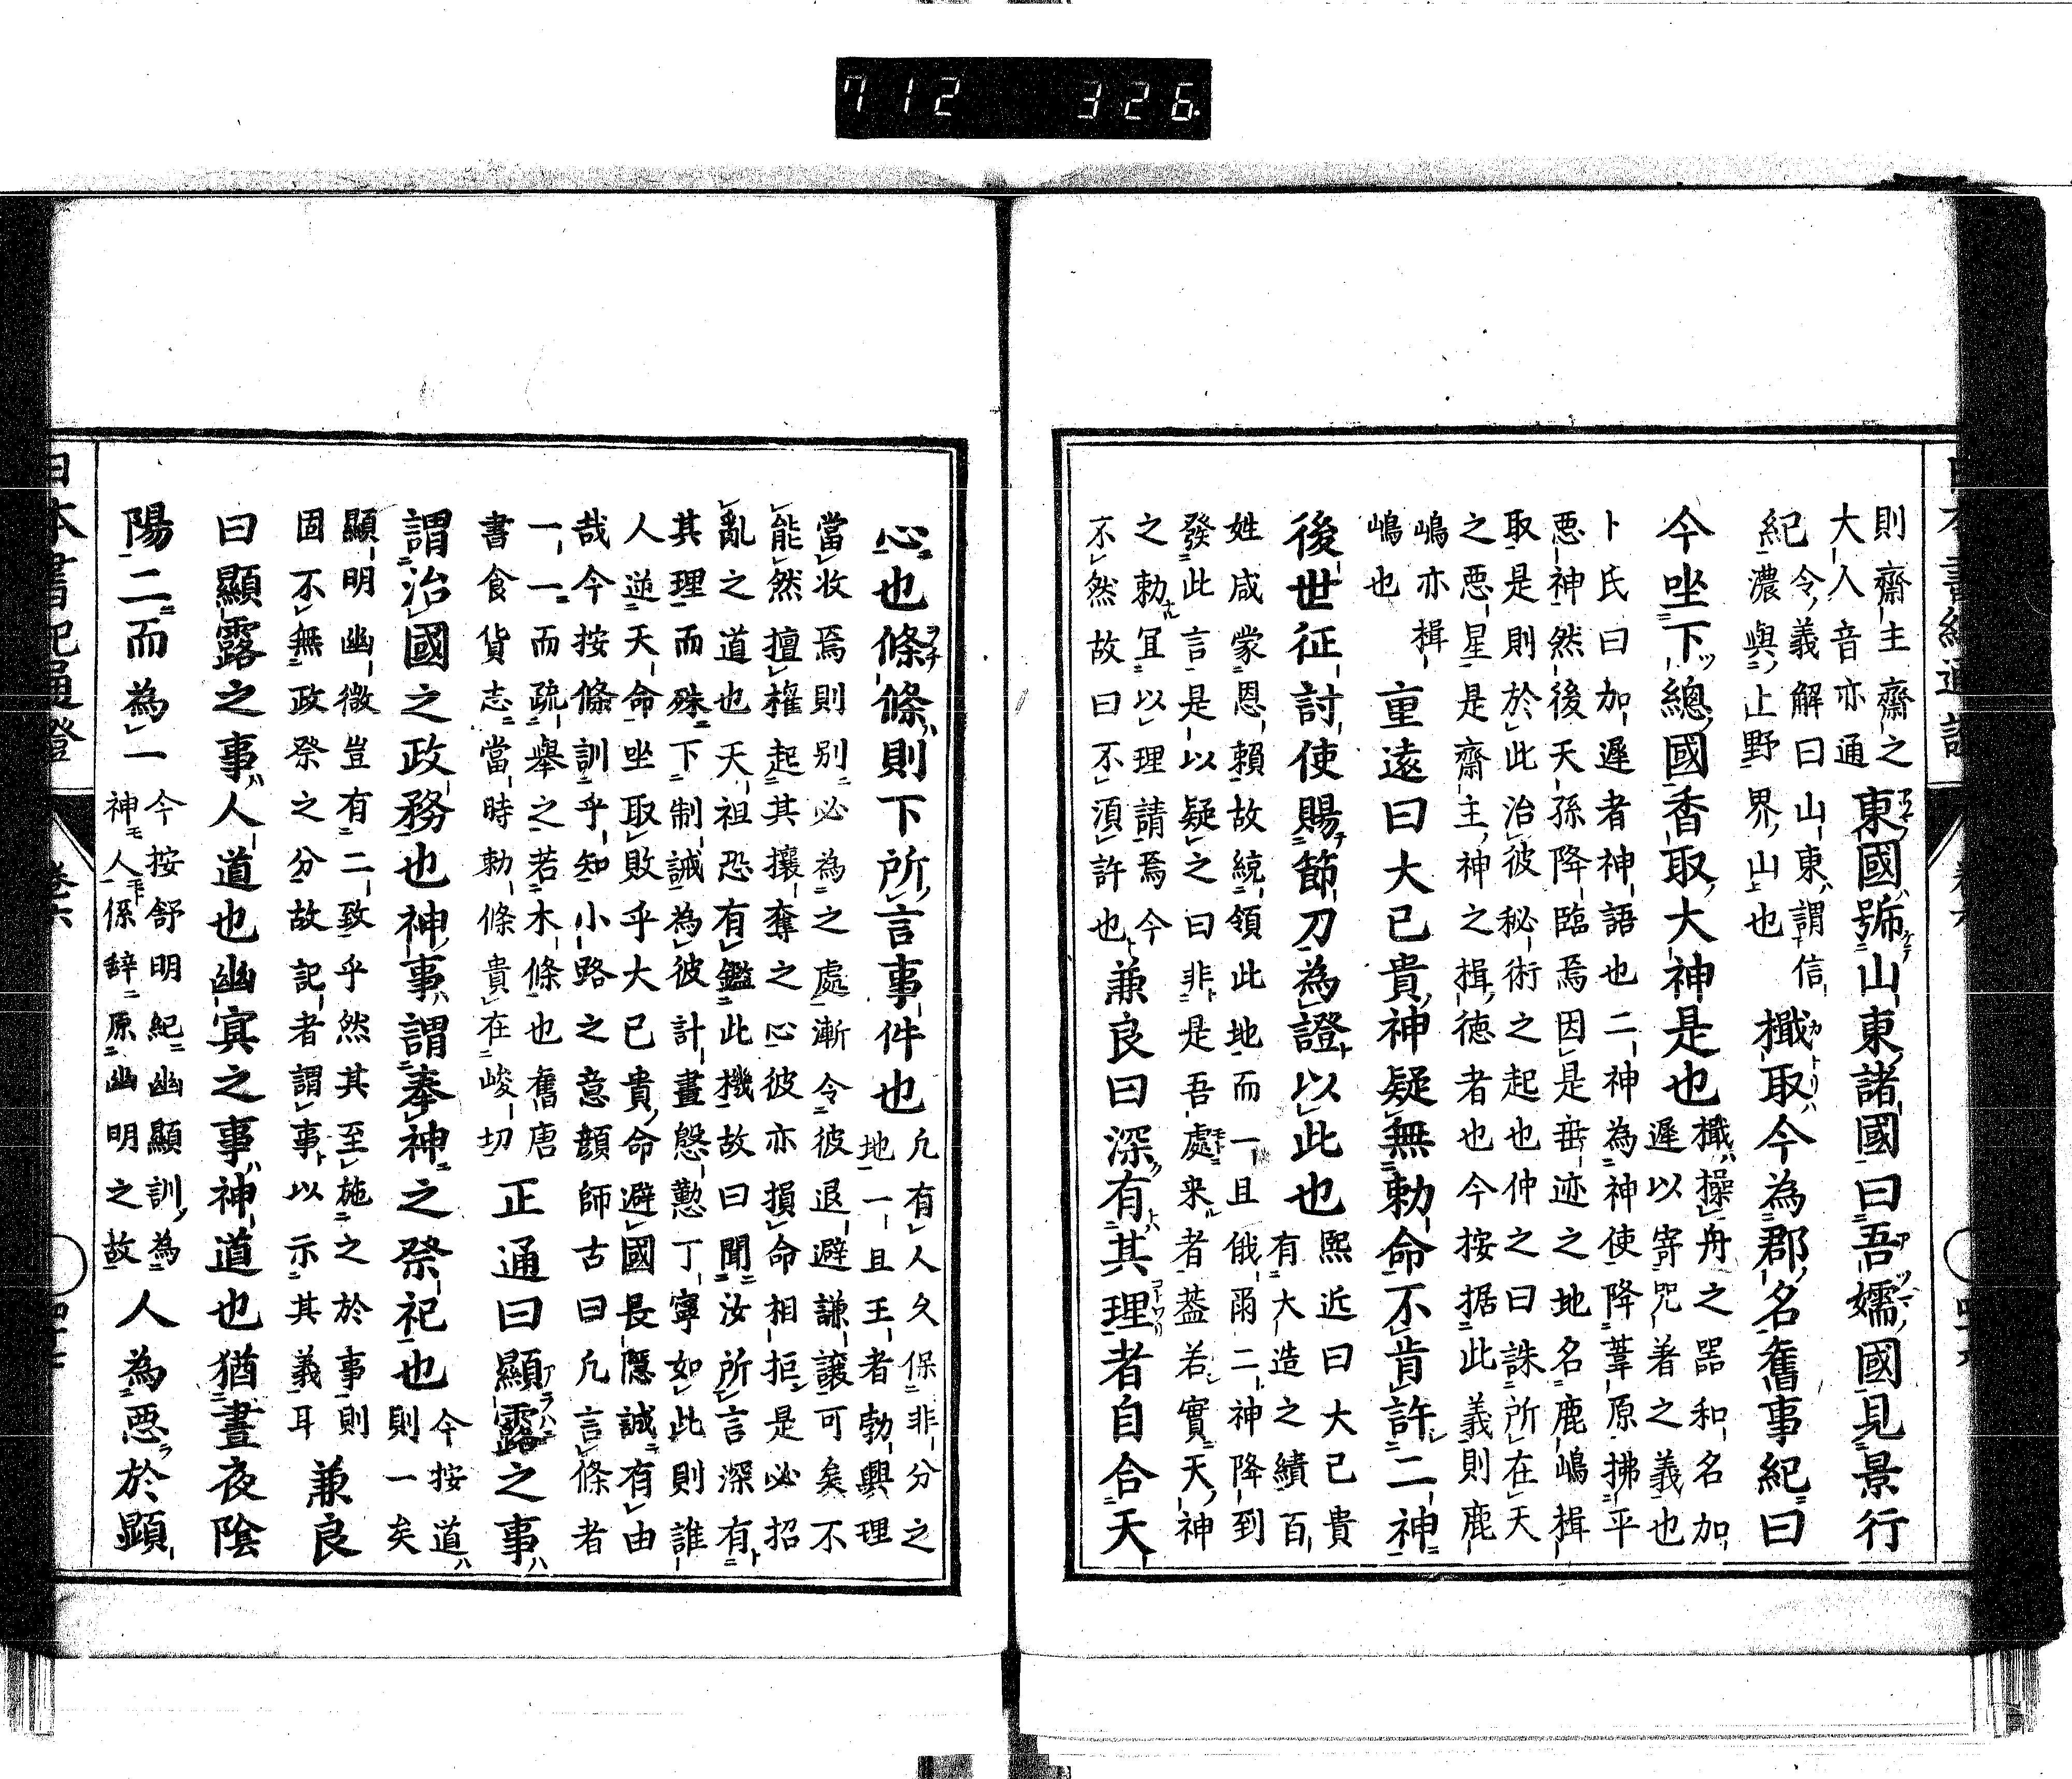 712 326.
則齋主齋之
大人音亦通
東國號山東諸國曰吾嬬國見景行
紀
令義解曰山東謂信
濃與上野界山也
檝取今為郡名舊事紀曰
今坐下總國香取大神是也
檝操舟之器和名加
遲以寄咒着之義也
卜氏曰加遲者神語也二神為神使降葦原拂平
悪神然後天孫降臨焉因是垂迹之地名鹿嶋楫
取是則於此治彼秘術之起也仲之曰誅所在天
之悪星是齋主神之楫徳者也今按据此義則鹿
嶋亦楫
嶋也
重遠曰大已貴神疑無勅命不肯許二神
後世征討使賜節刀為證以此也
熙近曰大已貴
有大造之績百
姓咸蒙恩頼故統領此地而一旦俄爾二神降到
發此言是以疑之曰非是吾處来者蓋若實天神
之勅冝以理請焉今
不然故曰不湏許也
兼良曰深有其理者自合天
心也條條則下所言事件也
凢有人久保非分之
地一旦王者勃興理
當收焉則别必為之處漸令彼退避謙讓可矣不
能然擅權起其攘奪之心彼亦損命相拒是必招
亂之道也天祖恐有鑑此機故曰聞汝所言深有
其理而殊下制誠為彼計畫慇懃丁寧如此則誰
人逆天命坐取敗乎大已貴命避國長隱誠有由
哉今按條訓乎知小路之意顔師古曰凢言條者
一一而疏舉之若木條也舊唐
書食貨志當時勅條貴在峻切
正通曰顯露之事
謂治國之政務也神事謂奉神之祭祀也
今按道
則一矣
顯明幽微豈有二致乎然其至施之於事則
固不無政祭之分故記者謂事以示其義耳
兼良
曰顯露之事人道也幽㝠之事神道也猶晝夜陰
陽二而為一
今按舒明紀幽顯訓為
神人係辞原幽明之故
人為悪於顯
日本書紀通證